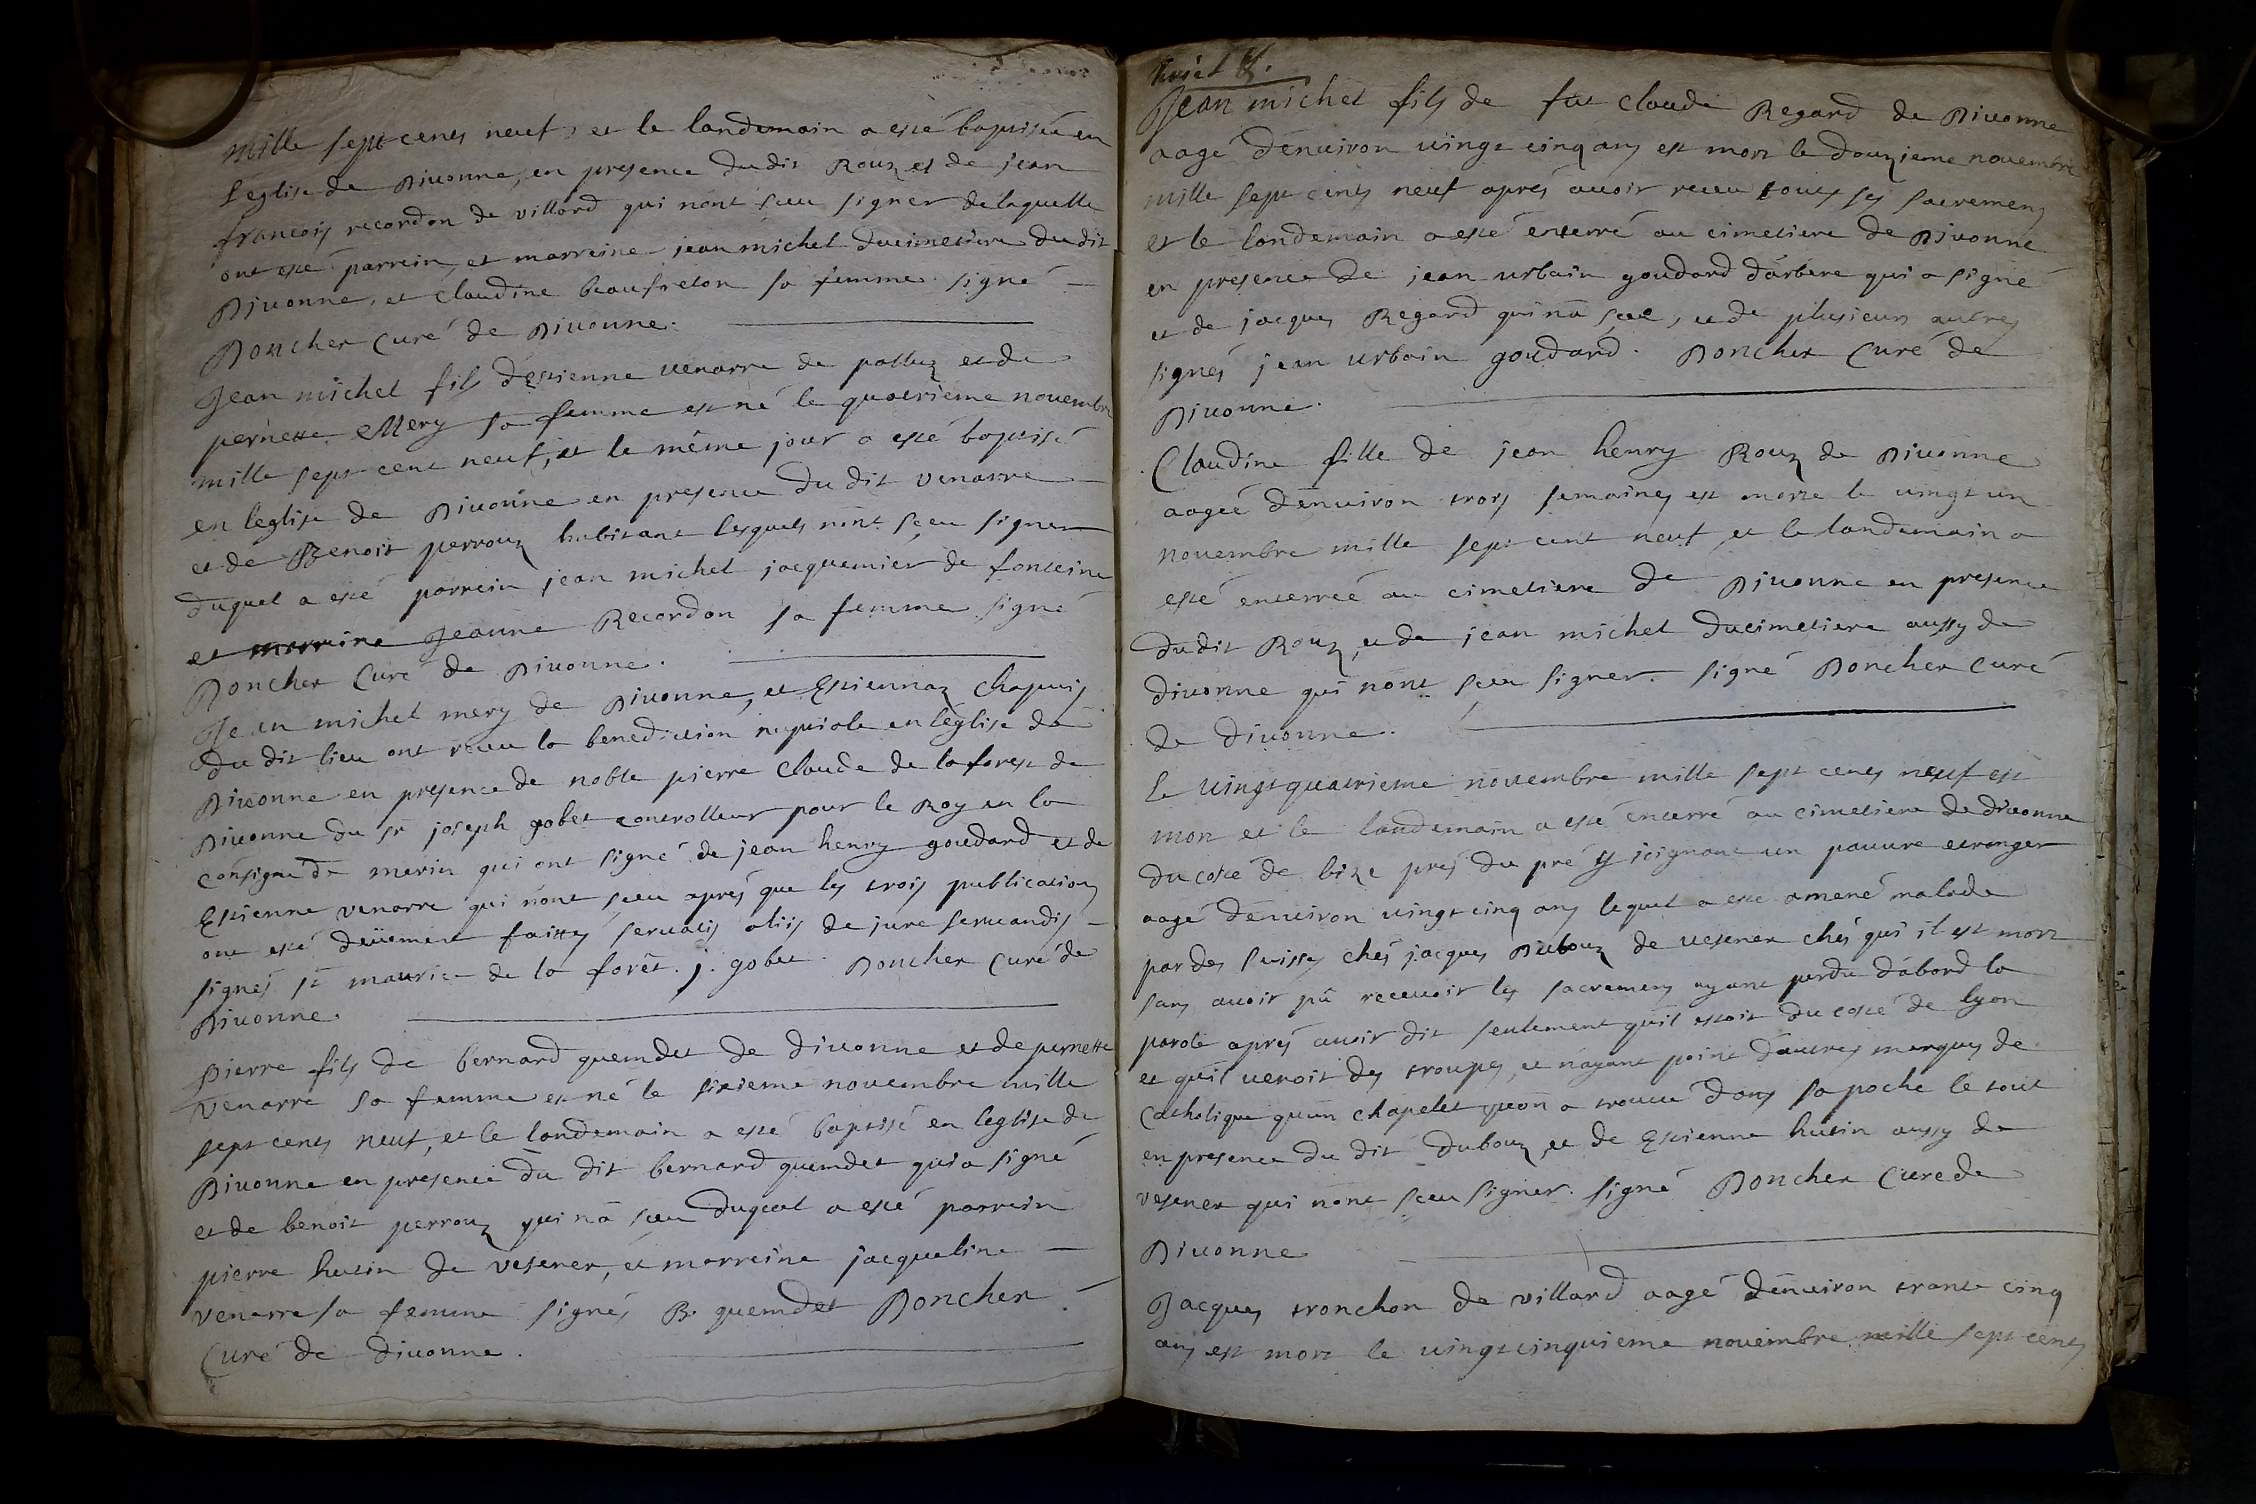 mille sept cents neuf, et le landemain a esté baptisée en
l'eglise de Divonne, en presence du dit Rouz et de jean
francois recordon de villard qui nont sceu signer de laquelle
ont esté parrein, et marreine jean michel ducimetiere du dit
Divonne, et claudine beaufreton sa femme signé
Doncher Curé de Divonne.
Jean michel fils d'estienne venarre de et de
pernette Mery sa femme est né le quatrième novembre
mille sept cent neuf, et le même jour a esté baptisé
en leglise de Divonne en presence du dit venarre
et de Benoit perrouz habitant lesquels nont sceu signer
duquel a esté parrein jean michel jacquemier de fonteine
et marreine Jeanne Recordon sa femme signé
Doncher Curé de Divonne.
Jean michel mery de Divonne, et Estiennaz chapuis
du dit lieu ont receu la benediction nuptiale en léglise de
Divonne en presence de noble pierre claude de la forest de
Divonne du sr joseph gobet controlleur pour le Roy en la
consigne de merin qui ont signé de jean henry goudard et de
Estienne venarre qui nont sceu aprés que les trois publications
ont esté deüement faittes servatis aliis de jure servandis
signés st maurice de la forêt. j. gobet. Doncher Curé de
Divonne.
Pierre fils de bernard quemdet de divonne et de pernette
venarre sa femme est né le sixieme novembre mille
sept cents neuf, et le landemain a esté baptisé en leglise de
Divonne en presence du dit bernard quemdet qui a signé
et de benoit perrouz qui nā sceu duquel a esté parrein
pierre hutin de vesener, et marreine jacqueline
venarre sa femme signés B. quemdet Doncher
Curé de divonne.
Jean michel fils de fut claude Regard de Divonne
aagé d'environ vingt cinq ans est mort le douzieme novembre
mille sept cents neuf aprés avoir receu tous ses sacremens
et le landemain a esté enterré au cimetiere de Divonne
en presence de jean urbain goudard d'arbere qui a signé
et de jacques Regard qui nā sceu, et de plusieurs autres
signés jean urbain goudard. Doncher Curé de
Divonne.
Claudine fille de jean henry Rouz de Divonne
aageé d'environ trois semaines est morte le vingt un
novembre mille sept cent neuf, et le landemain a
esté enterreé au cimetiere de Divonne en presence
du dit Rouz, et de jean michel ducimetiere aussy de
divonne qui nont sceu signer. signé Doncher Curé
de divonne.
Le vingt quatrieme novembre mille sept cents neuf est
mort et le landemain a esté enterré au cimetiere de divonne
du costé de bize prés du pré y joignant un pauvre etranger
aagé d'environ vingt cinq ans lequel a esté amené malade
par des suisses chés jacques Dubouz de vesener chés qui il est mort
sans avoir pû recevoir les sacremens ayant perdu d'abord la
parole aprés avoir dit seulement qu'il estoit du costé de lyon
et qu'il venoit des troupes, et n'ayant point d'autres marques de
Catholique qu'un chapelet quon a trouvé dans sa poche le tout
en presence du dit dubouz, et de Estienne hutin aussy de
vesener qui nont sceu signer. signé Doncher Curé de
Divonne
Jacques tronchon de villard aagé d'environ trante cinq
ans est mort le vingt cinquieme novembre mille sept cents